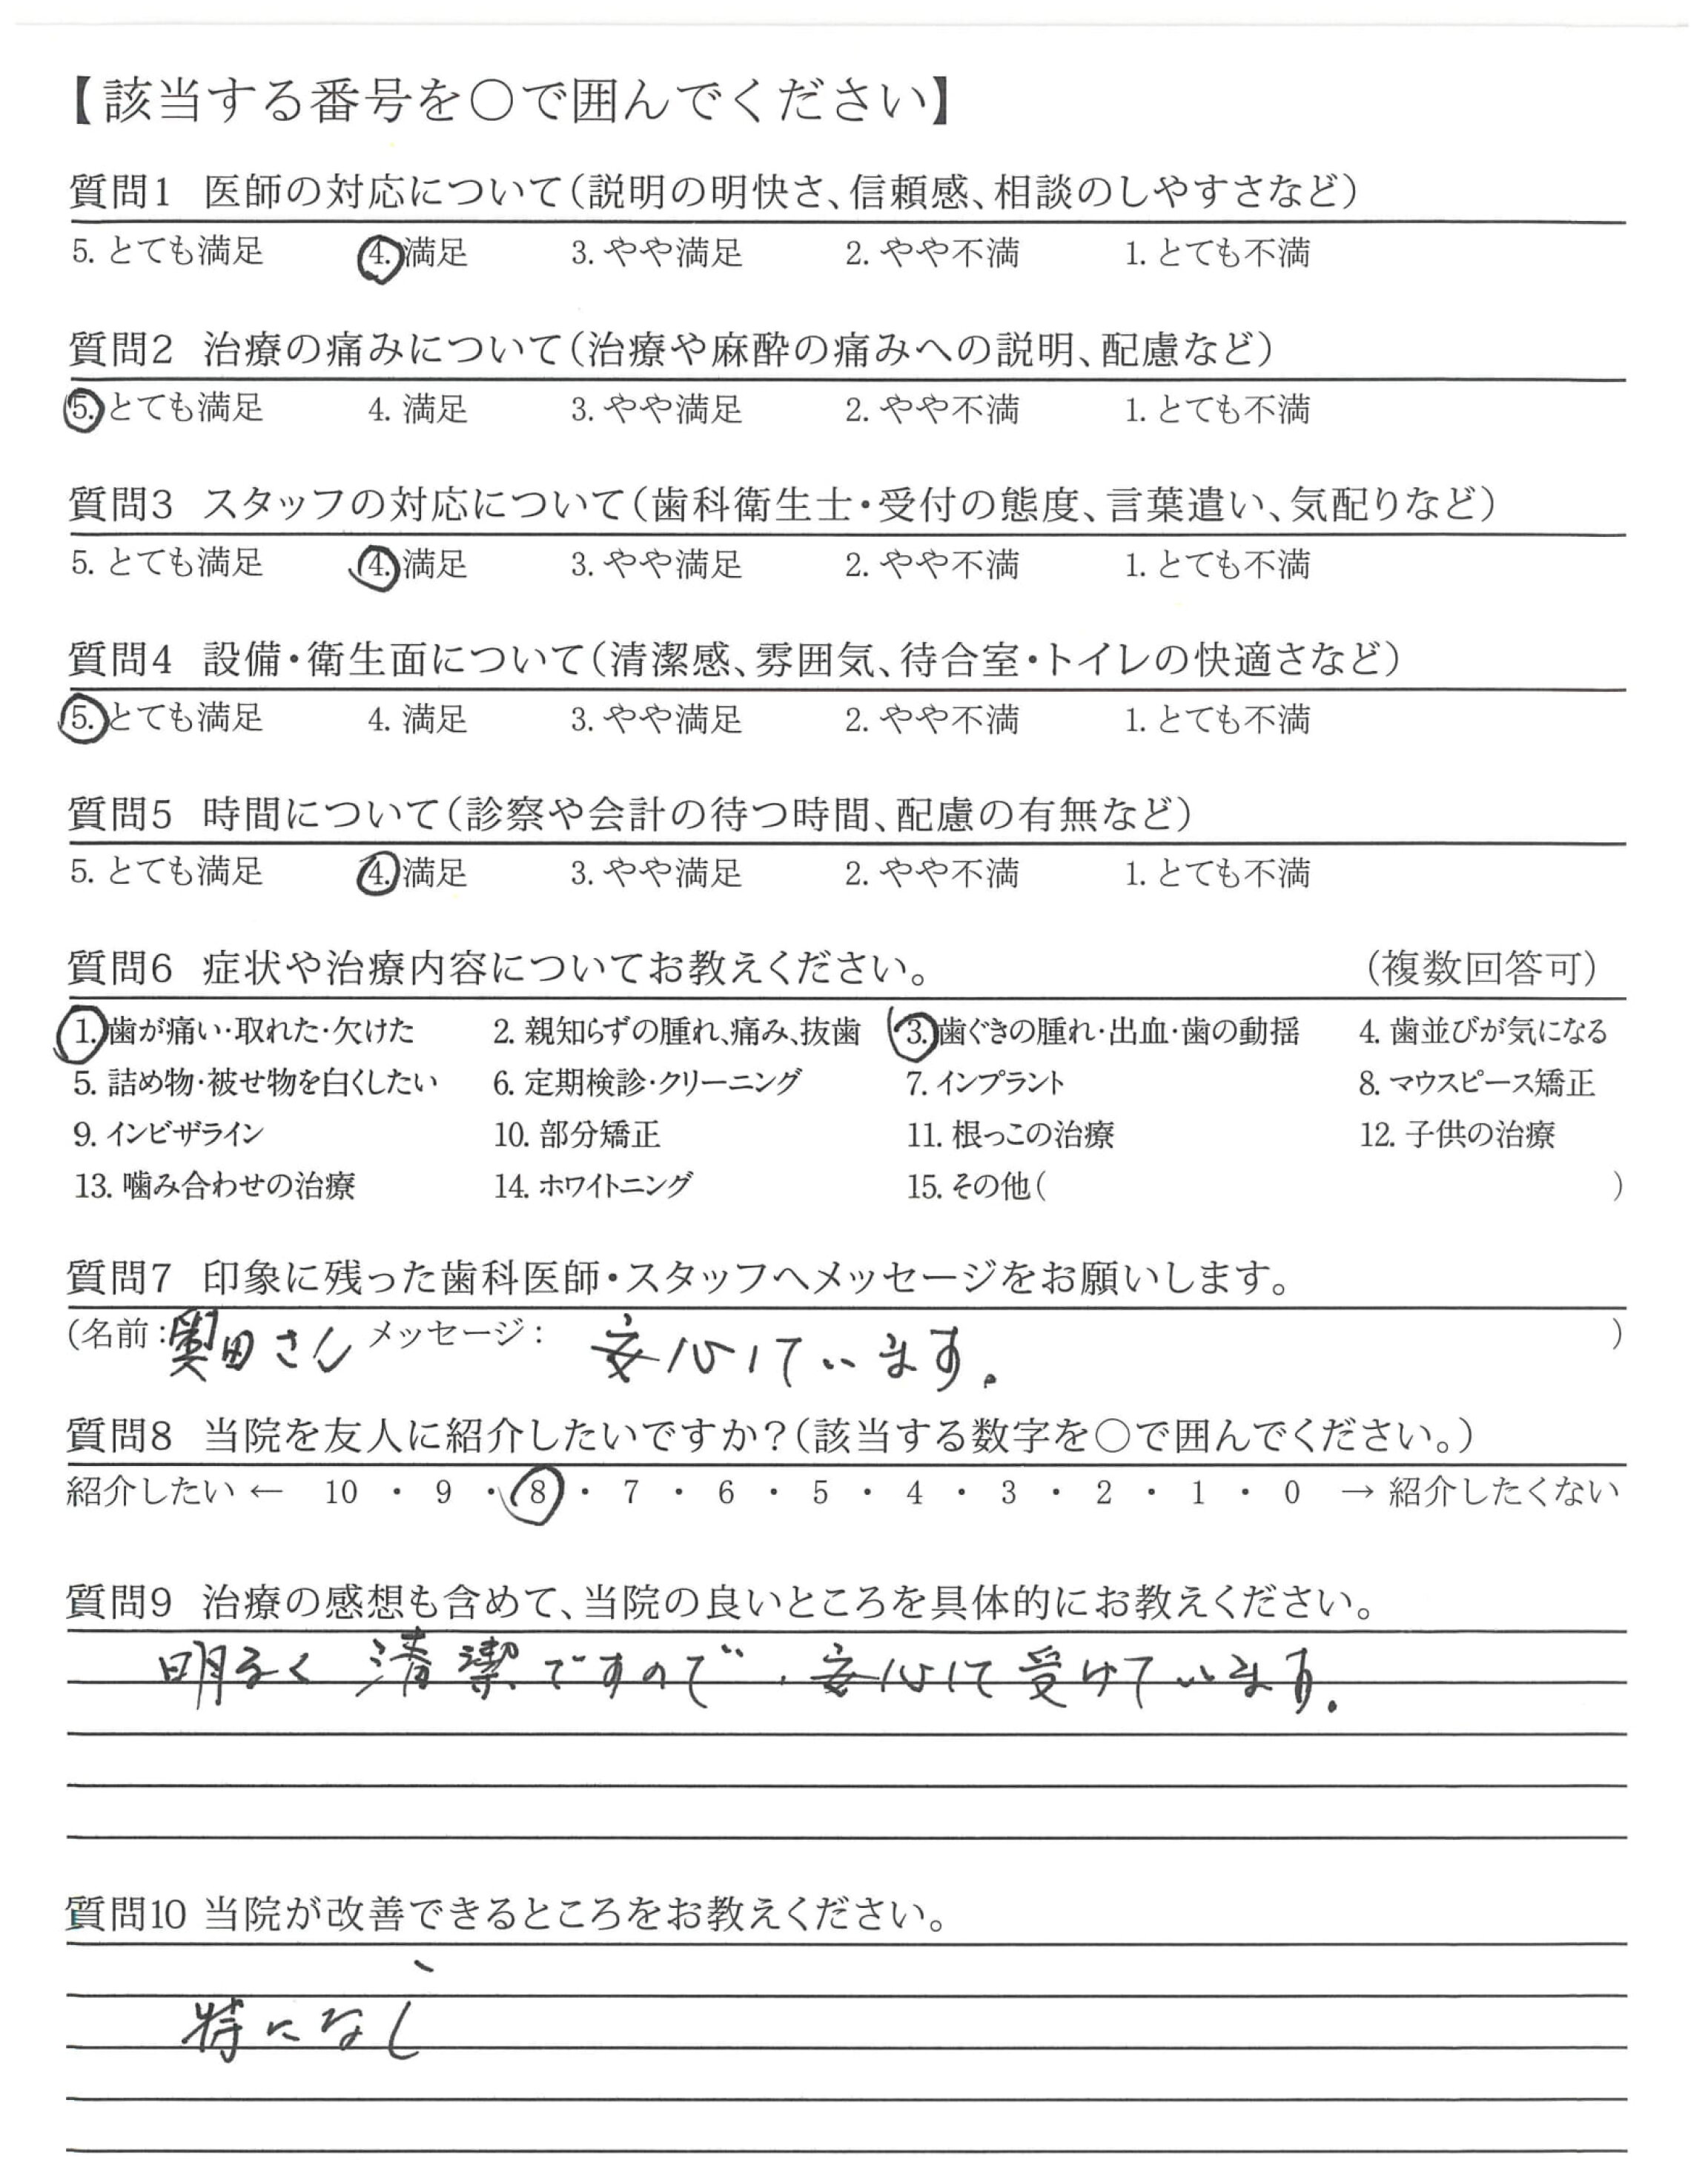 【該当する番号を〇で囲んでください】
質問1 医師の対応について(説明の明快さ、信頼感、相談のしやすさなど)
5. とても満足 4. 満足 3. やや満足 2. やや不満 1. とても不満
質問2 治療の痛みについて(治療や麻酔の痛みへの説明、配慮など)
5. とても満足 4. 満足 3. やや満足 2. やや不満 1. とても不満
質問3 スタッフの対応について(歯科衛生士・受付の態度、言葉遣い、気配りなど)
5. とても満足 4. 満足 3. やや満足 2. やや不満 1. とても不満
質問4 設備・衛生面について(清潔感、雰囲気、待合室・トイレの快適さなど)
5. とても満足 4. 満足 3. やや満足 2. やや不満 1. とても不満
質問5 時間について(診察や会計の待つ時間、配慮の有無など)
5. とても満足 4. 満足 3. やや満足 2. やや不満 1. とても不満
質問6 症状や治療内容についてお教えください。 (複数回答可)
1. 歯が痛い・取れた・欠けた 2. 親知らずの腫れ、痛み、抜歯 3. 歯ぐきの腫れ・出血・歯の動揺 4. 歯並びが気になる
5. 詰め物・被せ物を白くしたい 6. 定期検診・クリーニング 7. インプラント 8. マウスピース矯正
9. インビザライン 10. 部分矯正 11. 根っこの治療 12. 子供の治療
13. 噛み合わせの治療 14. ホワイトニング 15. その他( )
質問7 印象に残った歯科医師・スタッフへメッセージをお願いします。
(名前:奥田さん メッセージ: 安心しています。 )
質問8 当院を友人に紹介したいですか?(該当する数字を〇で囲んでください。)
紹介したい ← 10 ・ 9 ・ 8 ・ 7 ・ 6 ・ 5 ・ 4 ・ 3 ・ 2 ・ 1 ・ 0 → 紹介したくない
質問9 治療の感想も含めて、当院の良いところを具体的にお教えください。
明るく清潔ですので、安心して受けています。
質問10 当院が改善できるところをお教えください。
特になし